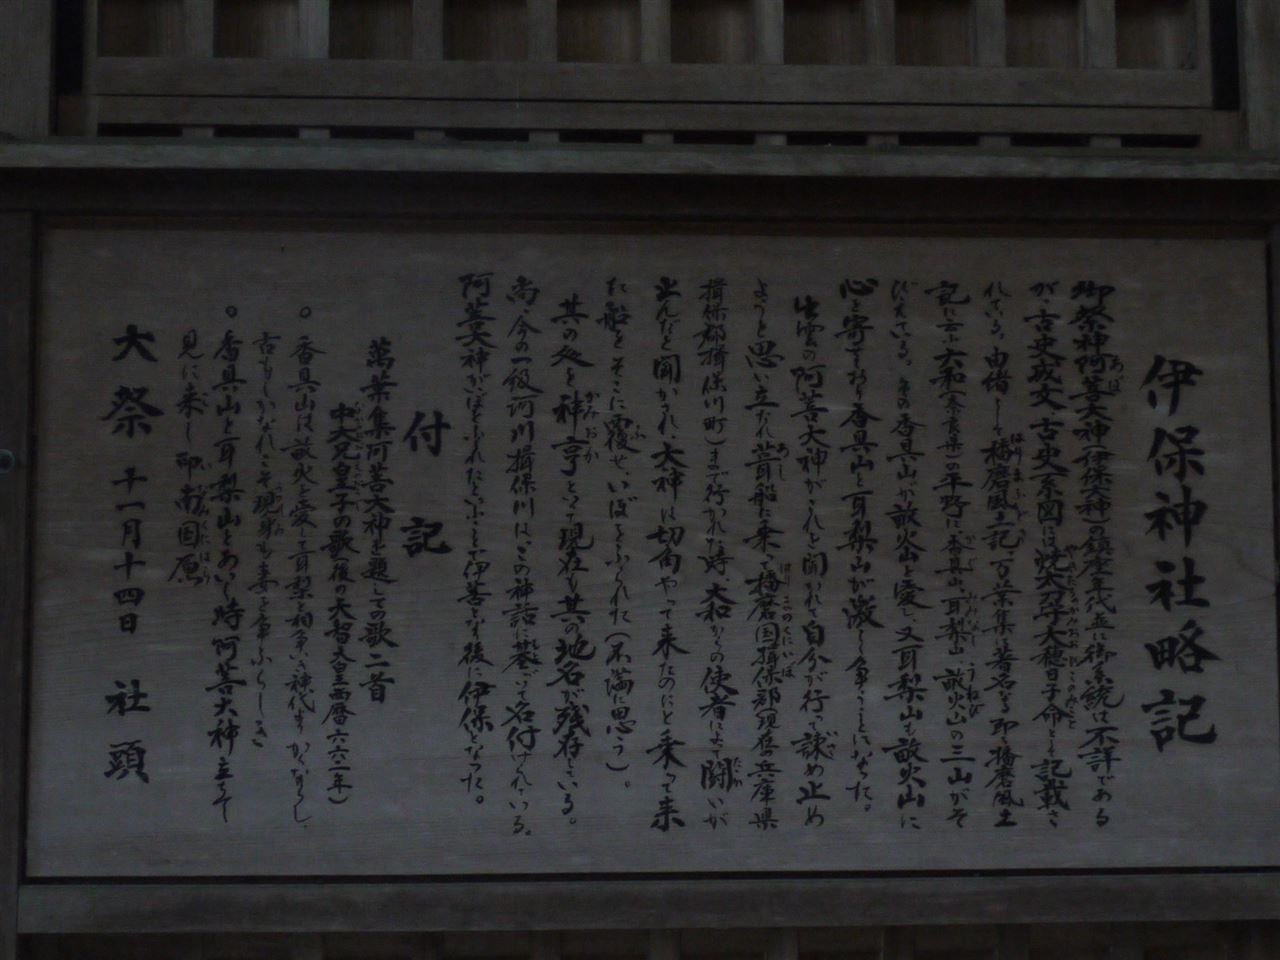 伊保神社略記
御祭神阿菩大神(伊保大神)の鎮座年代並に御系統は不詳である
が、古史成文、古史系図には焼太刀守大穂日子命とも記載さ
れている。由緒として播磨風土記、万葉集に著名なる即播磨風土
記に云ふ大和(奈良県)の平野に香具山、耳梨山、畝火山の三山がそ
びえている。その香具山が畝火山を愛し、又耳梨山も畝火山に
心を寄せており香具山と耳梨山が激しく争うことになった。
出雲の阿菩大神がこれを聞かれて自分が行って諌め止め
ようと思い立たれ葺船に乗って播磨国揖保郡(現在の兵庫県
揖保郡揖保川町)まで行かれた時、大和からの使者によって闘いが
止んだと聞かされ、大神は切角やって来たのにと乗って来
た船をそこに覆せ、いぼをふくれた(不満に思う)。
其の処を神亨として現在も其の地名が残存している。
尚、今の一級河川揖保川は、この神話に基づいて名付けられている。
阿菩大神がいぼをふくれたということで伊菩となり後に伊保となった。
付記
萬葉集阿菩大神を題しての歌二首
中大兄皇子の歌(後の天智天皇西暦六六一年)
○香具山は畝火を愛しと耳梨と相争いき神代よりかくなるらし、
古もしかなれこそ現身も妻を争ふらしき
○香具山と耳梨山とあいし時阿菩大神立ちて
見に来し印南国原
大祭 十一月十四日 社頭